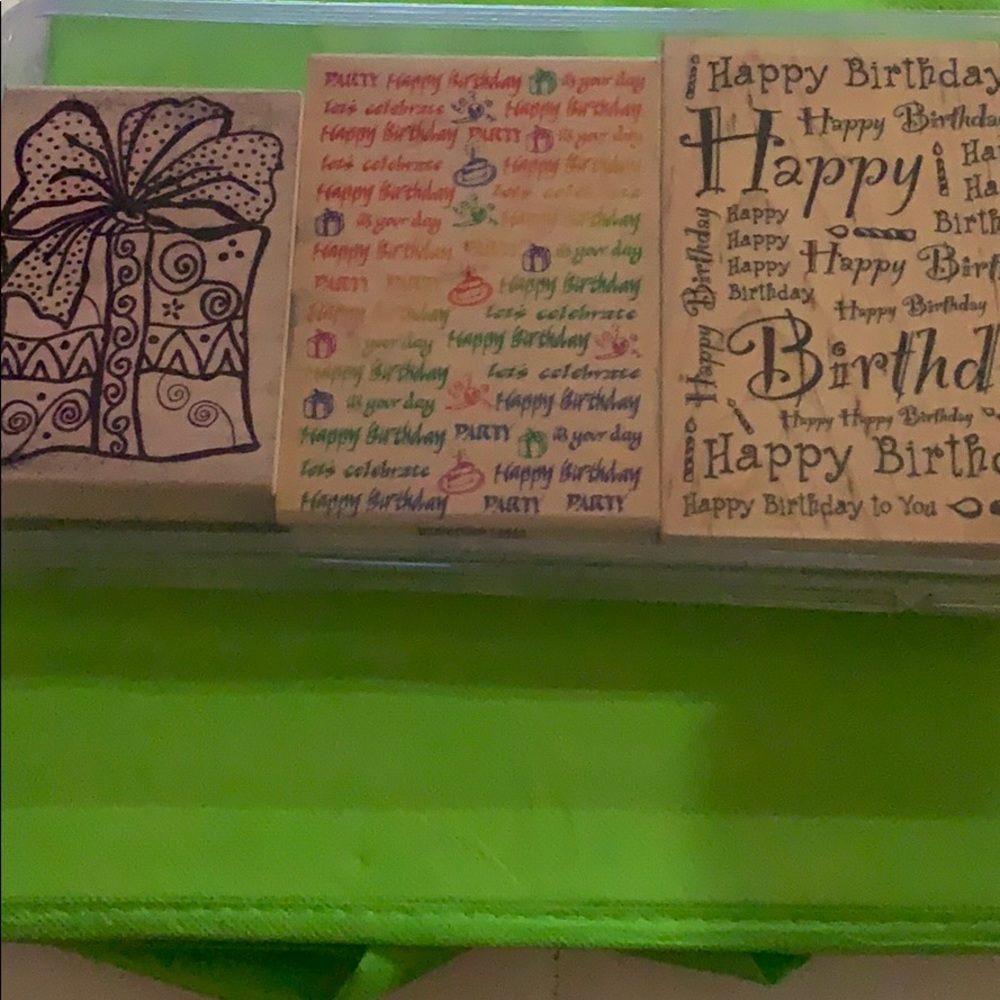 PARTY Happy Birthday it's your day
let's celebrate Happy Birthday
Happy Birthday PARTY it's your day
let's celebrate Happy Birthday
Happy Birthday let's celebrate
it's your day Happy Birthday
Happy Birthday PARTY it's your day
PARTY PARTY Happy Birthday
Happy Birthday let's celebrate
it's your day Happy Birthday
Happy Birthday let's celebrate
it's your day Happy Birthday
Happy Birthday PARTY it's your day
let's celebrate Happy Birthday
Happy Birthday PARTY PARTY
Happy Birthday
Happy Birthda
Happy
Ha
Ha
Happy
Birth
Happy
Happy Birt
Happy
Birthday
Birthday
Happy Birthday
Happy
Birthd
Happy Happy Birthday
Happy Birthd
Happy Birthday to You